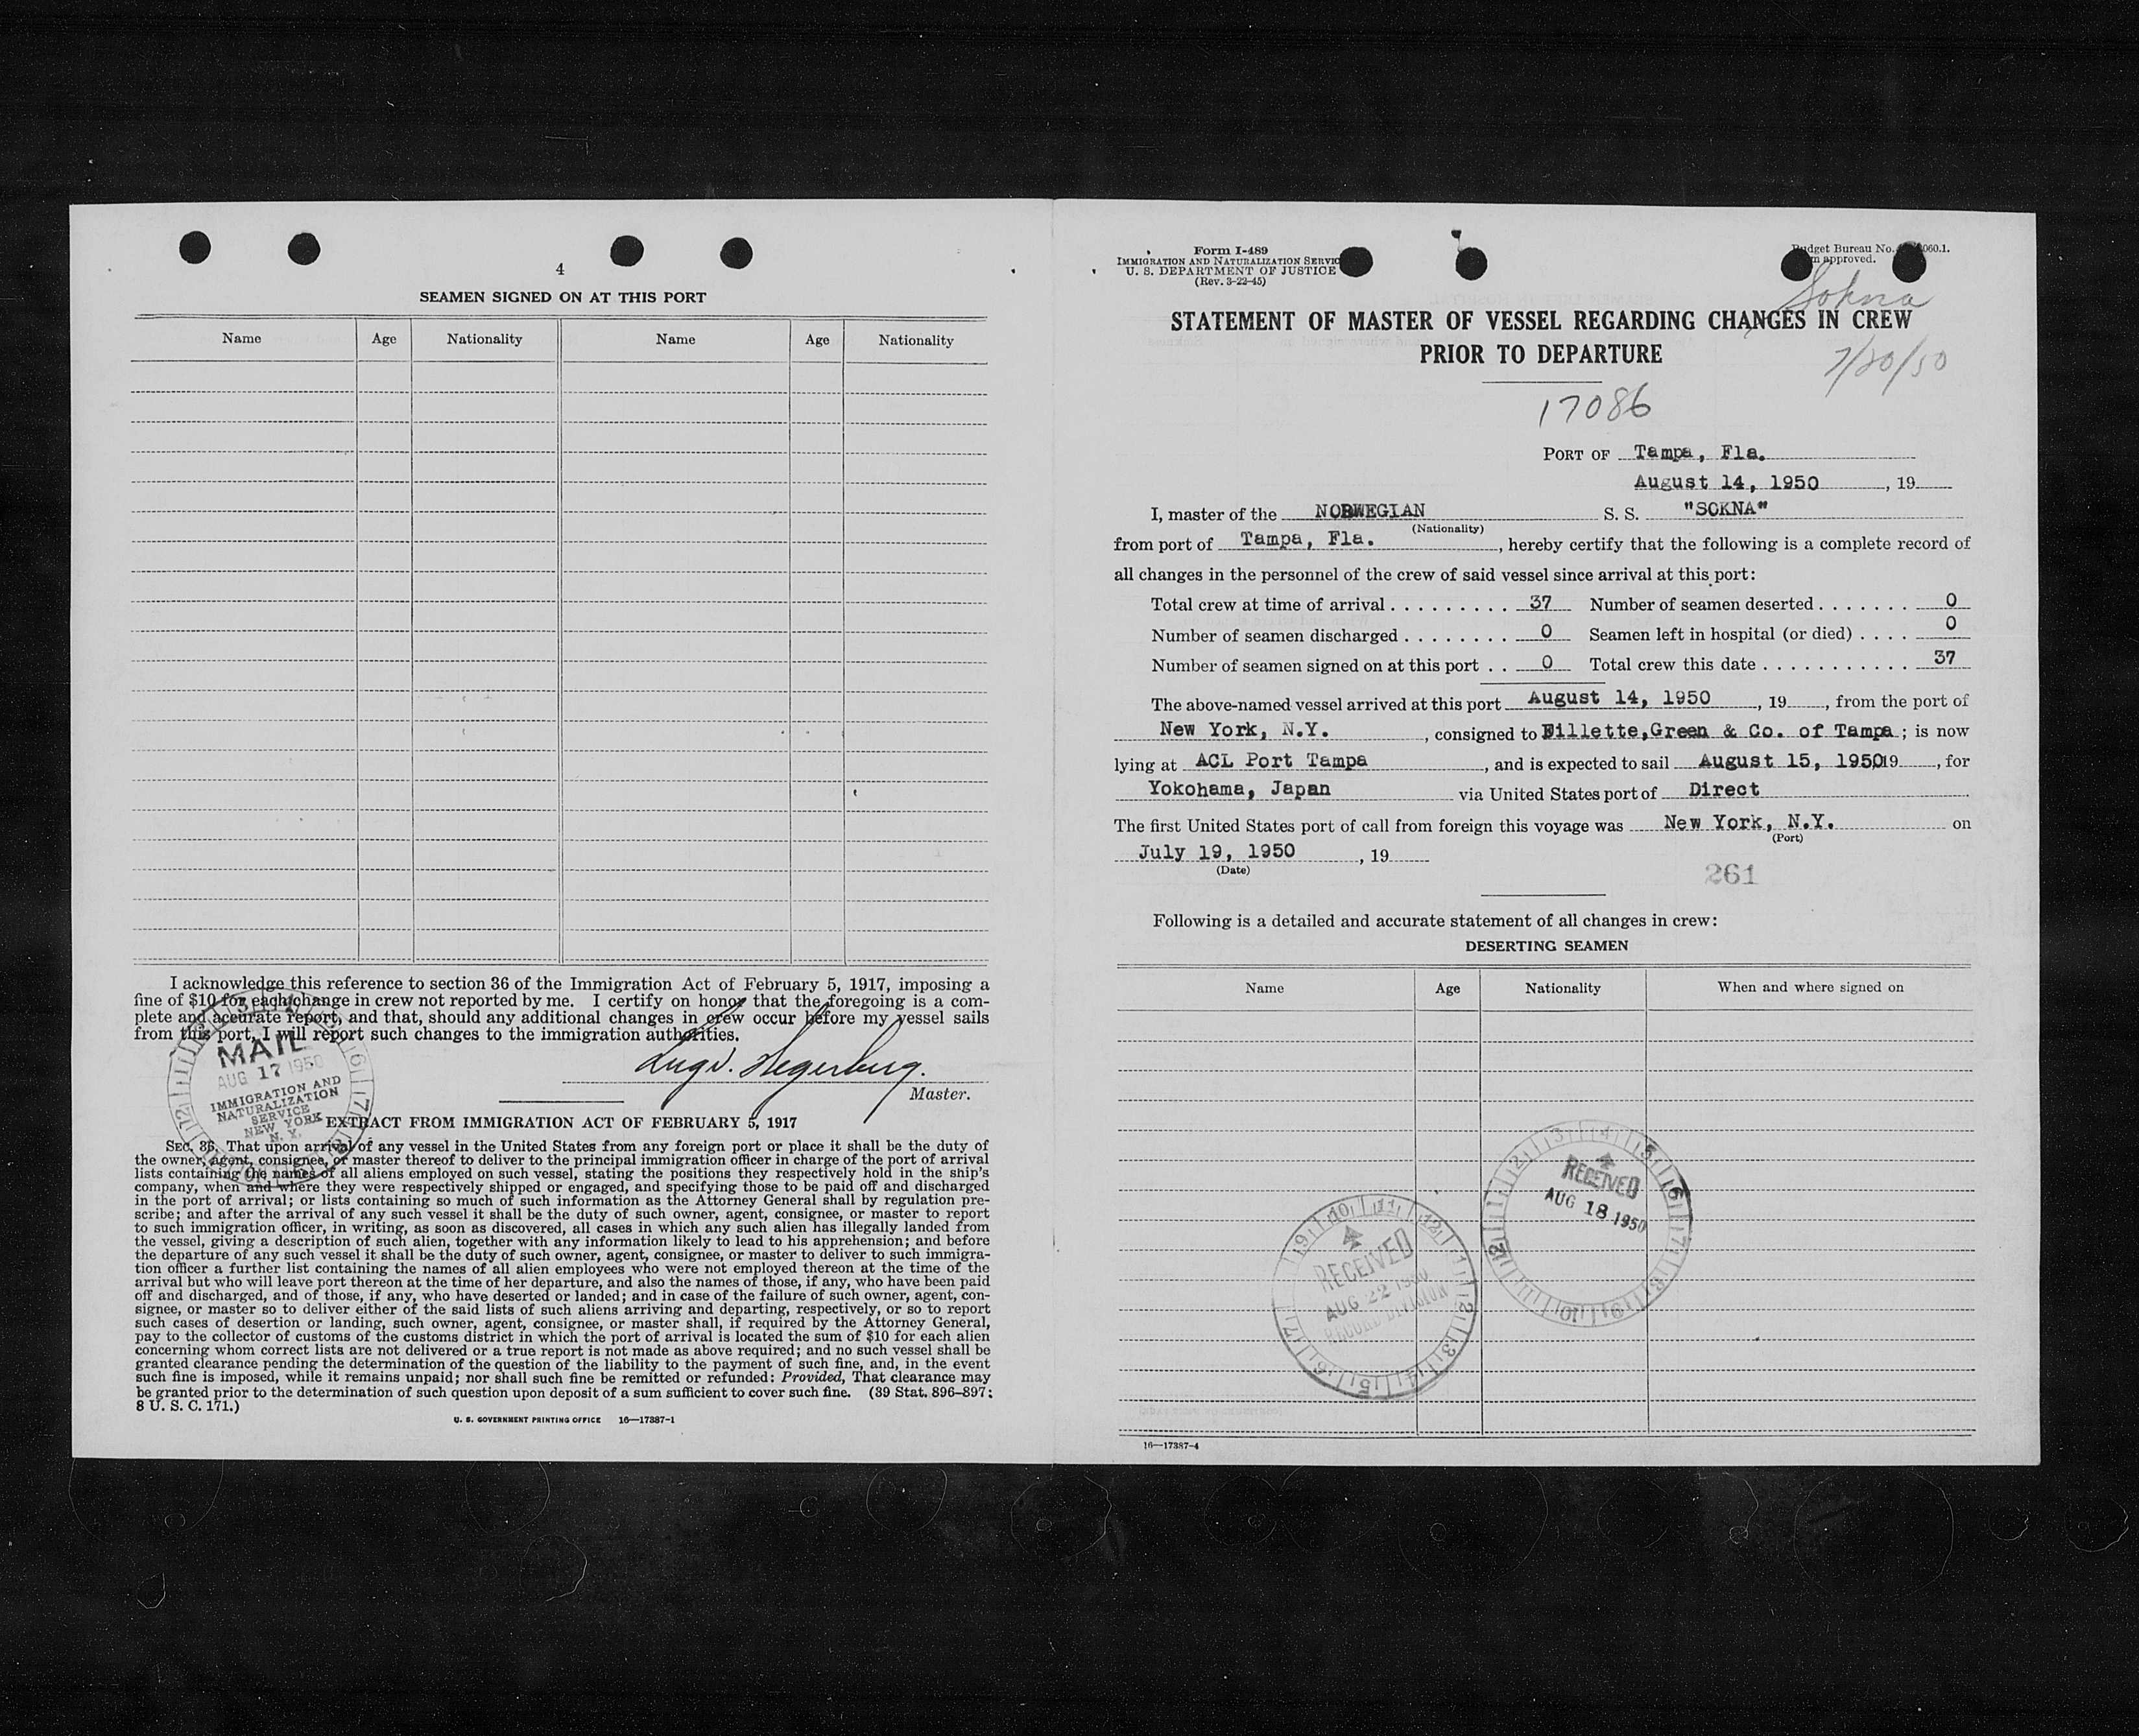 4
SEAMEN SIGNED ON AT THIS PORT
Name Age Nationality Name Age Nationality
I acknowledge this reference to section 36 of the Immigration Act of February 5, 1917, imposing a
fine of $10 for each change in crew not reported by me. I certify on honor that the foregoing is a com-
plete and accurate report, and that, should any additional changes in crew occur before my vessel sails
from this port, I will report such changes to the immigration authorities.
MAIL
AUG 17 1950
IMMIGRATION AND
NATURALIZATION
SERVICE
NEW YORK
N. Y.
Master.
EXTRACT FROM IMMIGRATION ACT OF FEBRUARY 5, 1917
SEC. 36. That upon arrival of any vessel in the United States from any foreign port or place it shall be the duty of
the owner, agent, consignee, or master thereof to deliver to the principal immigration officer in charge of the port of arrival
lists containing the names of all aliens employed on such vessel, stating the positions they respectively hold in the ship's
company, when and where they were respectively shipped or engaged, and specifying those to be paid off and discharged
in the port of arrival; or lists containing so much of such information as the Attorney General shall by regulation pre-
scribe; and after the arrival of any such vessel it shall be the duty of such owner, agent, consignee, or master to report
to such immigration officer, in writing, as soon as discovered, all cases in which any such alien has illegally landed from
the vessel, giving a description of such alien, together with any information likely to lead to his apprehension; and before
the departure of any such vessel it shall be the duty of such owner, agent, consignee, or master to deliver to such immigra-
tion officer a further list containing the names of all alien employees who were not employed thereon at the time of the
arrival but who will leave port thereon at the time of her departure, and also the names of those, if any, who have been paid
off and discharged, and of those, if any, who have deserted or landed; and in case of the failure of such owner, agent, con-
signee, or master so to deliver either of the said lists of such aliens arriving and departing, respectively, or so to report
such cases of desertion or landing, such owner, agent, consignee, or master shall, if required by the Attorney General,
pay to the collector of customs of the customs district in which the port of arrival is located the sum of $10 for each alien
concerning whom correct lists are not delivered or a true report is not made as above required; and no such vessel shall be
granted clearance pending the determination of the question of the liability to the payment of such fine, and, in the event
such fine is imposed, while it remains unpaid; nor shall such fine be remitted or refunded: Provided, That clearance may
be granted prior to the determination of such question upon deposit of a sum sufficient to cover such fine. (39 Stat. 896–897;
8 U. S. C. 171.)
U. S. GOVERNMENT PRINTING OFFICE 16—17387-1
Form I-489
IMMIGRATION AND NATURALIZATION SERVIC
U. S. DEPARTMENT OF JUSTICE
(Rev. 3-22-45)
Budget Bureau No. 060.1.
approved.
Sokna
STATEMENT OF MASTER OF VESSEL REGARDING CHANGES IN CREW
PRIOR TO DEPARTURE
7/20/50
17086
PORT OF Tampa, Fla.
August 14, 1950, 19
I, master of the NORWEGIAN S. S. "SOKNA"
(Nationality)
from port of Tampa, Fla., hereby certify that the following is a complete record of
all changes in the personnel of the crew of said vessel since arrival at this port:
Total crew at time of arrival . . . . . . . . . 37 Number of seamen deserted . . . . . . . 0
Number of seamen discharged . . . . . . . . 0 Seamen left in hospital (or died) . . . . 0
Number of seamen signed on at this port . . 0 Total crew this date . . . . . . . . . . . 37
The above-named vessel arrived at this port August 14, 1950, 19, from the port of
New York, N.Y., consigned to Fillette,Green & Co. of Tampa; is now
lying at ACL Port Tampa, and is expected to sail August 15, 1950, 19, for
Yokohama, Japan via United States port of Direct
The first United States port of call from foreign this voyage was New York, N.Y. on
(Port)
July 19, 1950, 19
(Date)
261
Following is a detailed and accurate statement of all changes in crew:
DESERTING SEAMEN
Name Age Nationality When and where signed on
RECEIVED
AUG 18 1950
RECEIVED
AUG 22 1950
RECORD DIVISION
16—17387-4